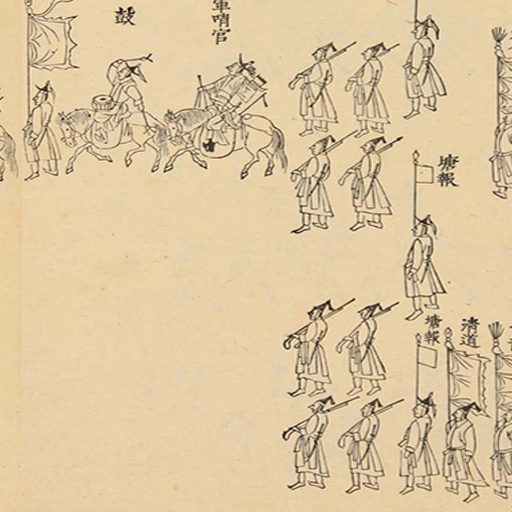 塘報
清道
塘報
軍哨官
鼓